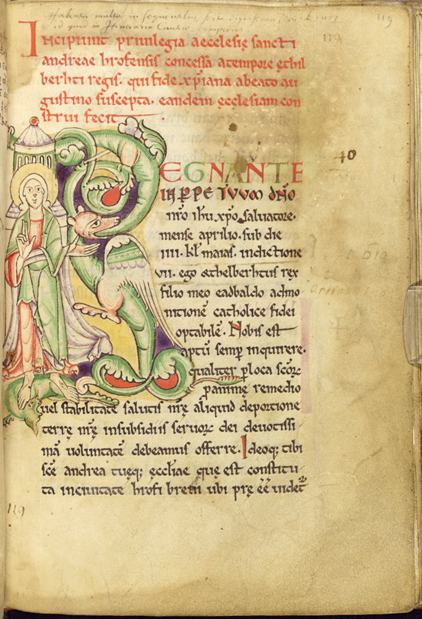 119
Incipiunt privilegia aecclesię sancti
andreae hrofensis concessa a tempore ęthil
berhti regis. qui fide xp̄iana abeato au
gustino suscepta. eandem ęcclesiam con
strui fecit
40
REGNANTE
IN P̄PETVVM DÑO
nr̄o ihu xp̄o saluatore.
mense aprilio. sub die
.IIII. kl̄ maias. indictione
VII. ego æthelberhtus rex
filio meo eadbaldo admo
nitionē catholice fidei
optabilē. Nobis est
aptū semp̄ inquirere.
qualiter p̄ loca scōr
p̄ animę remedio
uel stabilitatē salutis nr̄ę aliquid deportione
terre nr̄ę in subsidiis seruor̄ dei deuotissi
mā uoluntatē debeamus offerre. Ideoq; tibi
scē andrea tuęq; ęccliae quę est constitu
ta inciuitate hrofi breui ubi pręēē uidet᷑
119